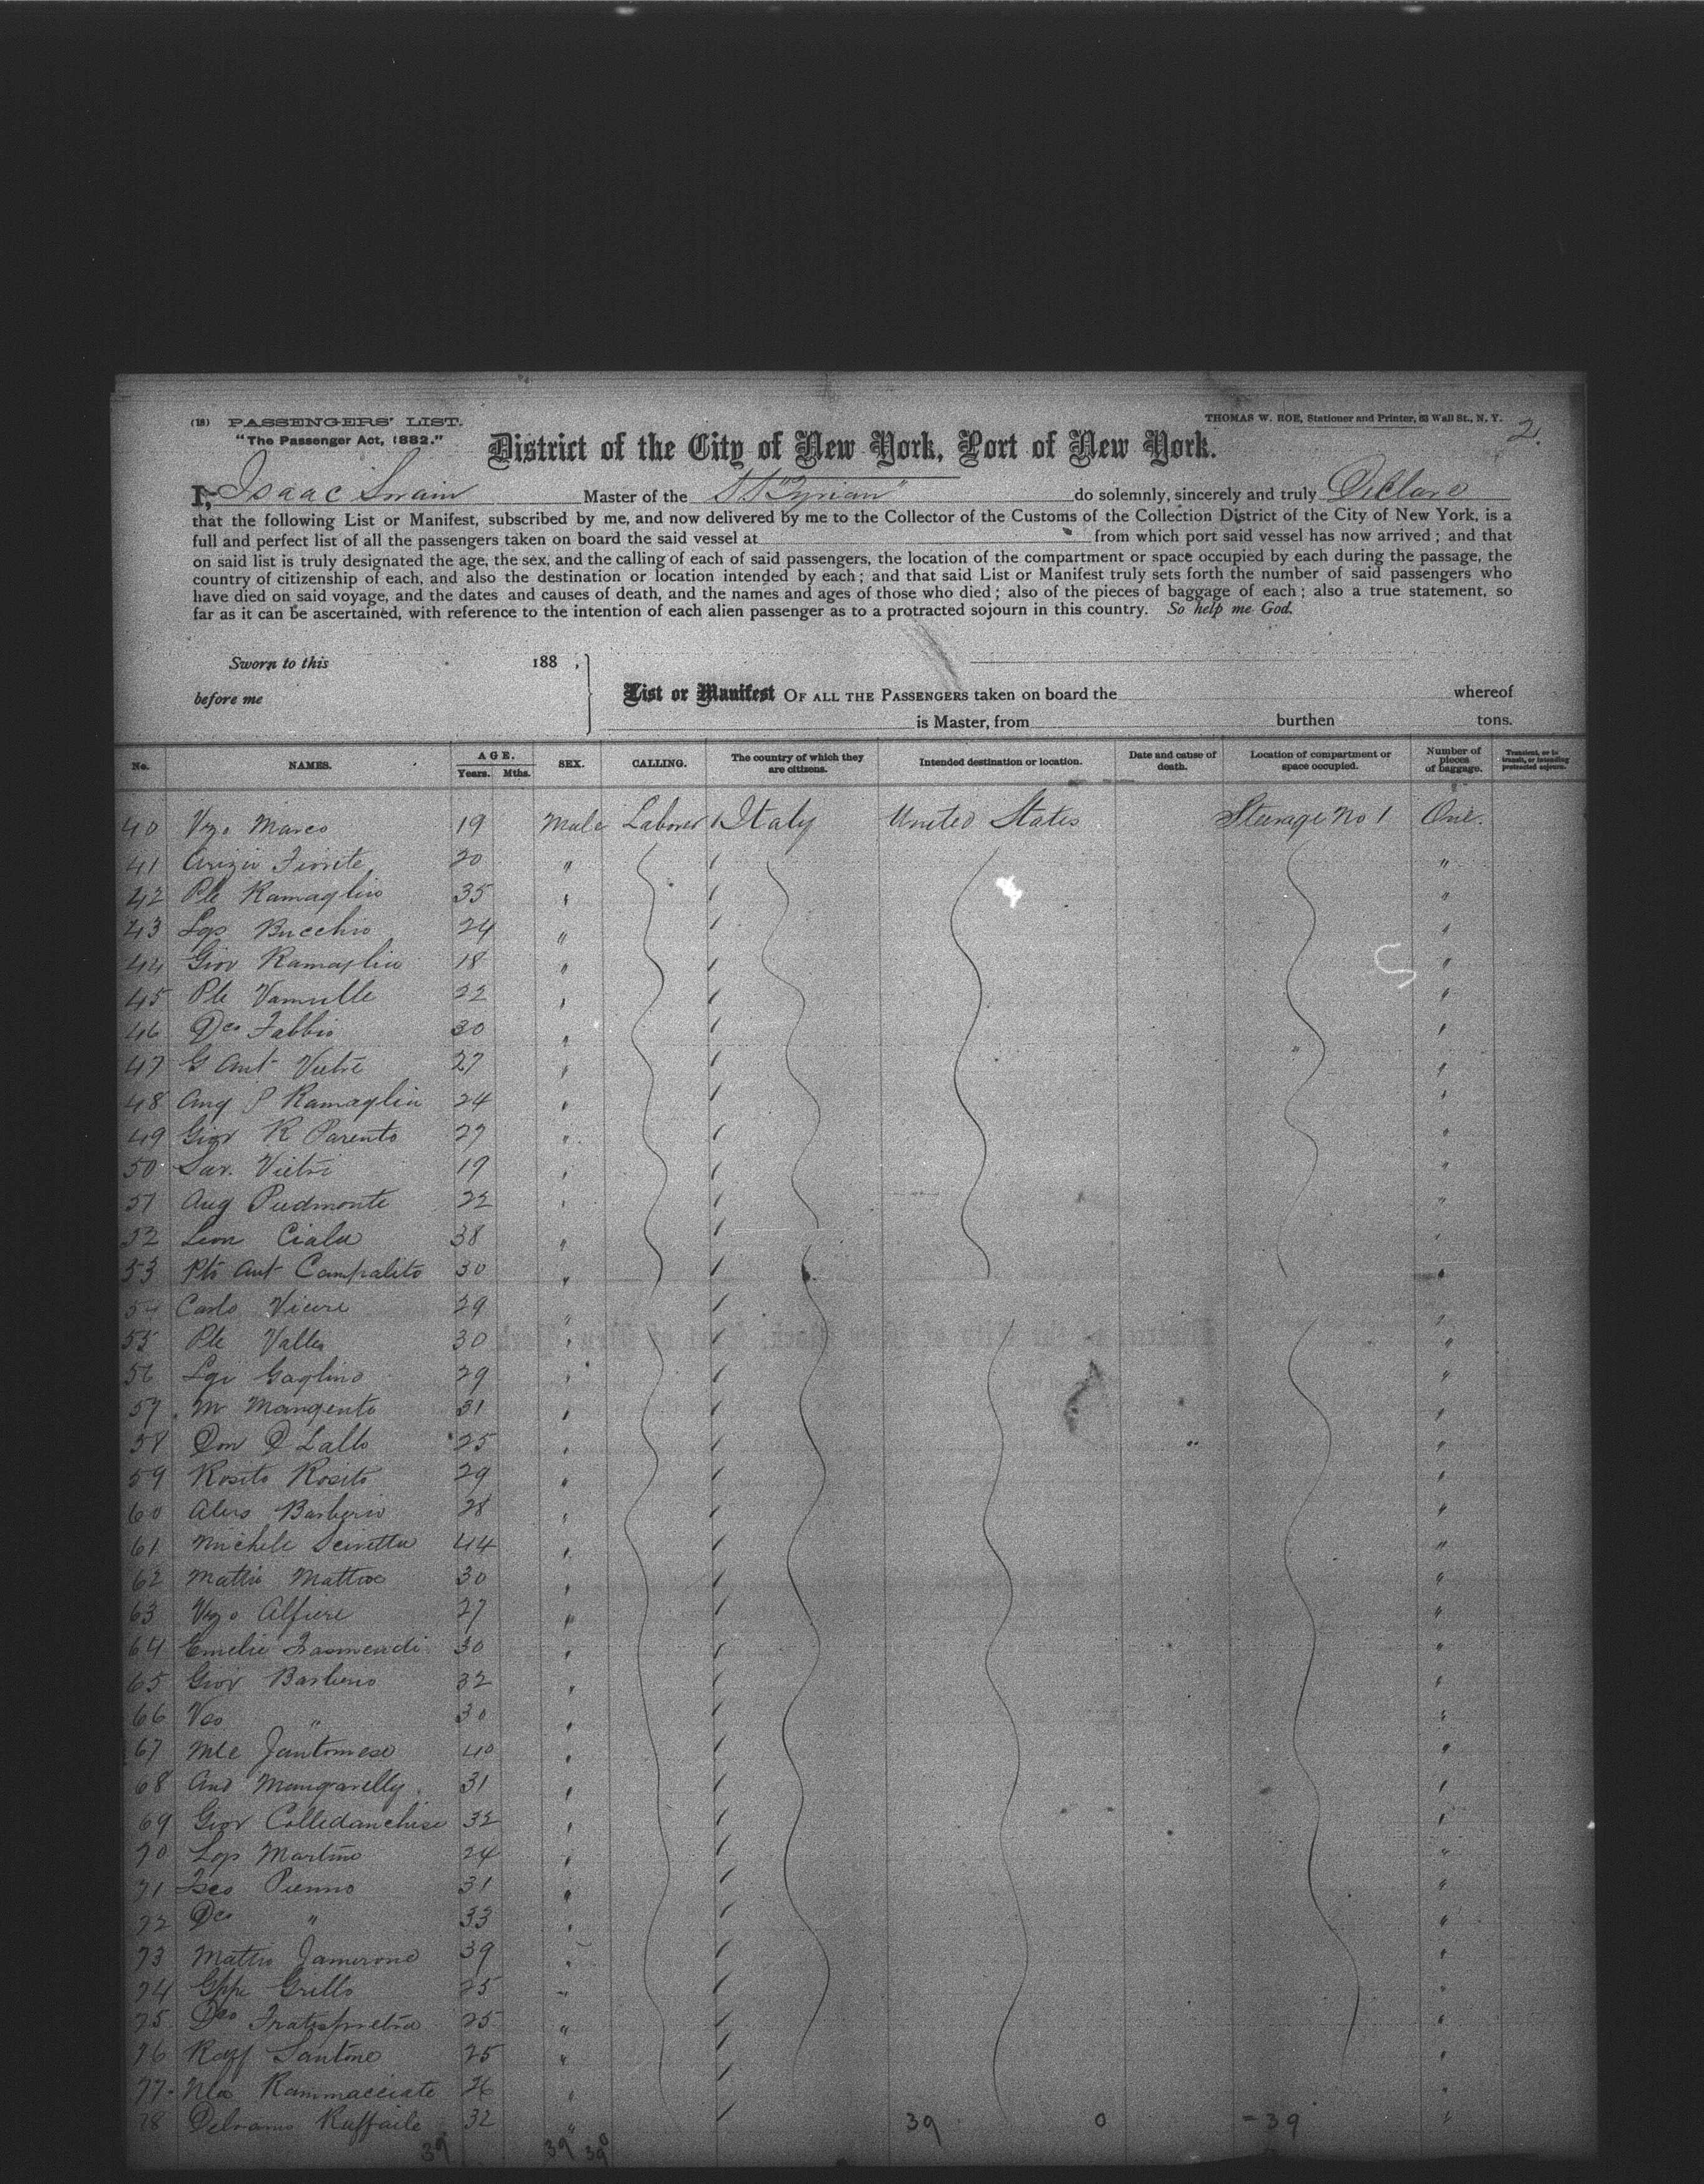 (18) PASSENGERS' LIST.
"The Passenger Act, 1882."
THOMAS W. ROE, Stationer and Printer, 63 Wall St., N. Y.
2.
District of the City of New York, Port of New York.
I, Isaac Swain Master of the SS "Tyrian" do solemnly, sincerely and truly Declare
that the following List or Manifest, subscribed by me, and now delivered by me to the Collector of the Customs of the Collection District of the City of New York, is a
full and perfect list of all the passengers taken on board the said vessel at from which port said vessel has now arrived; and that
on said list is truly designated the age, the sex, and the calling of each of said passengers, the location of the compartment or space occupied by each during the passage, the
country of citizenship of each, and also the destination or location intended by each; and that said List or Manifest truly sets forth the number of said passengers who
have died on said voyage, and the dates and causes of death, and the names and ages of those who died; also of the pieces of baggage of each; also a true statement, so
far as it can be ascertained, with reference to the intention of each alien passenger as to a protracted sojourn in this country. So help me God.
Sworn to this 188 ,
before me
List or Manifest OF ALL THE PASSENGERS taken on board the whereof
is Master, from burthen tons.
No. NAMES. AGE. Years. Mths. SEX. CALLING. The country of which they are citizens. Intended destination or location. Date and cause of death. Location of compartment or space occupied. Number of pieces of baggage. Transient, or in transit, or intending protracted sojourn.
40 Vzo Marco 19 Male Laborer Italy United States Steerage No 1 One.
41 20 "
42 Ple Ramaglio 35 "
43 Bucchio 24 "
44 Giov Ramaglio 18 "
45 Ple 22 "
46 Dco Fabbio 30 "
47 G Ant Vietri 27 "
48 Ang P Ramaglia 24 "
49 Giov R Parento 27 "
50 Sav. Vietri 19 "
51 Aug Piedmonte 22 "
52 Leon Cialu 38 "
53 Ant Campalito 30 "
54 Carlo 29 "
55 Ple Valles 30 "
56 Lgi Gaglino 29 "
57 M Mangento 31 "
58 Don D Lallo 25 "
59 Rosito Rosito 29 "
60 Barberio 28 "
61 Michele 44 "
62 Mattio 30 "
63 Vzo Alfiere 27 "
64 Emelio 30 "
65 Giov Barberio 32 "
66 " 30 "
67 Mle Jantomeso 40 "
68 And Mangarelly 31 "
69 Giov Colledanchise 32 "
70 Martino 24 "
71 Pienno 31 "
72 Dco " 33 "
73 Mattio Jamerone 39 "
74 Gppe Grillo 25 "
75 Dco 25 "
76 Raff Santone 25 "
77 Rammacciate 26 "
78 Raffaile 32 "
39 0 - 39
39 39 39 0